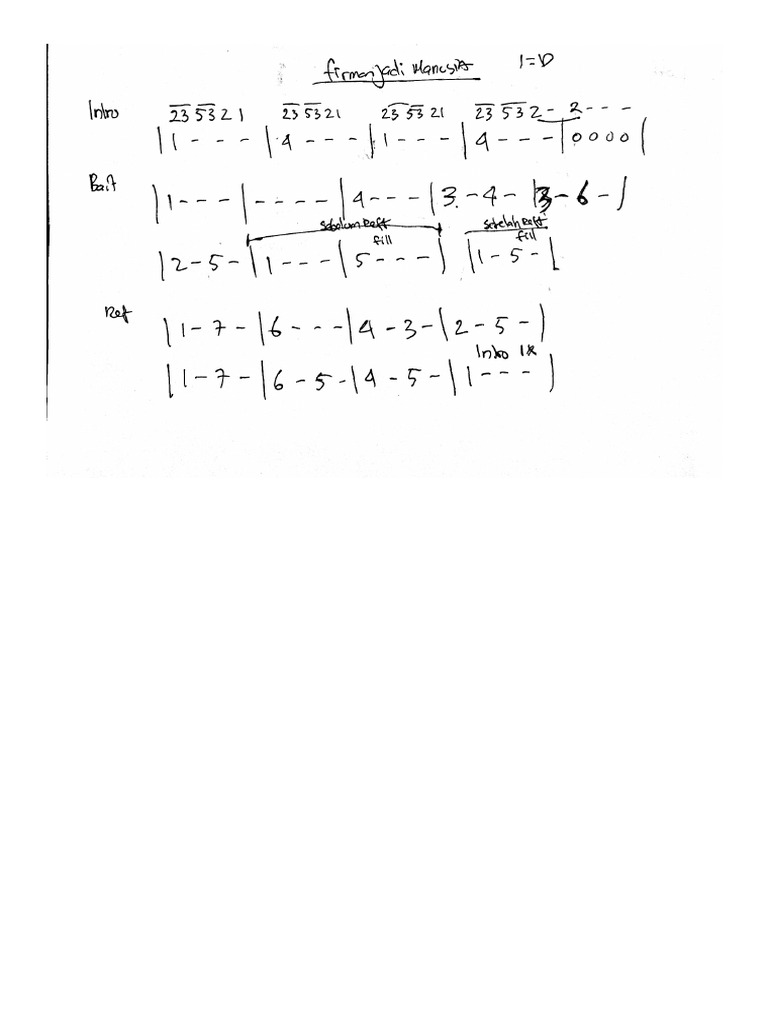 Firman jadi Manusia 1=D
Intro 23 53 2 1 23 53 21 23 53 21 23 53 2 - 2 - - -
| 1 - - - | 4 - - - | 1 - - - | 4 - - - | 0 0 0 0 |
Bait | 1 - - - | - - - - | 4 - - - | 3 - 4 - | 3 - 6 - |
sebelum Reff setelah Reff
fill fill
| 2 - 5 - | 1 - - - | 5 - - - | | 1 - 5 - |
Ref | 1 - 7 - | 6 - - - | 4 - 3 - | 2 - 5 - |
Intro 1x
| 1 - 7 - | 6 - 5 - | 4 - 5 - | 1 - - - |